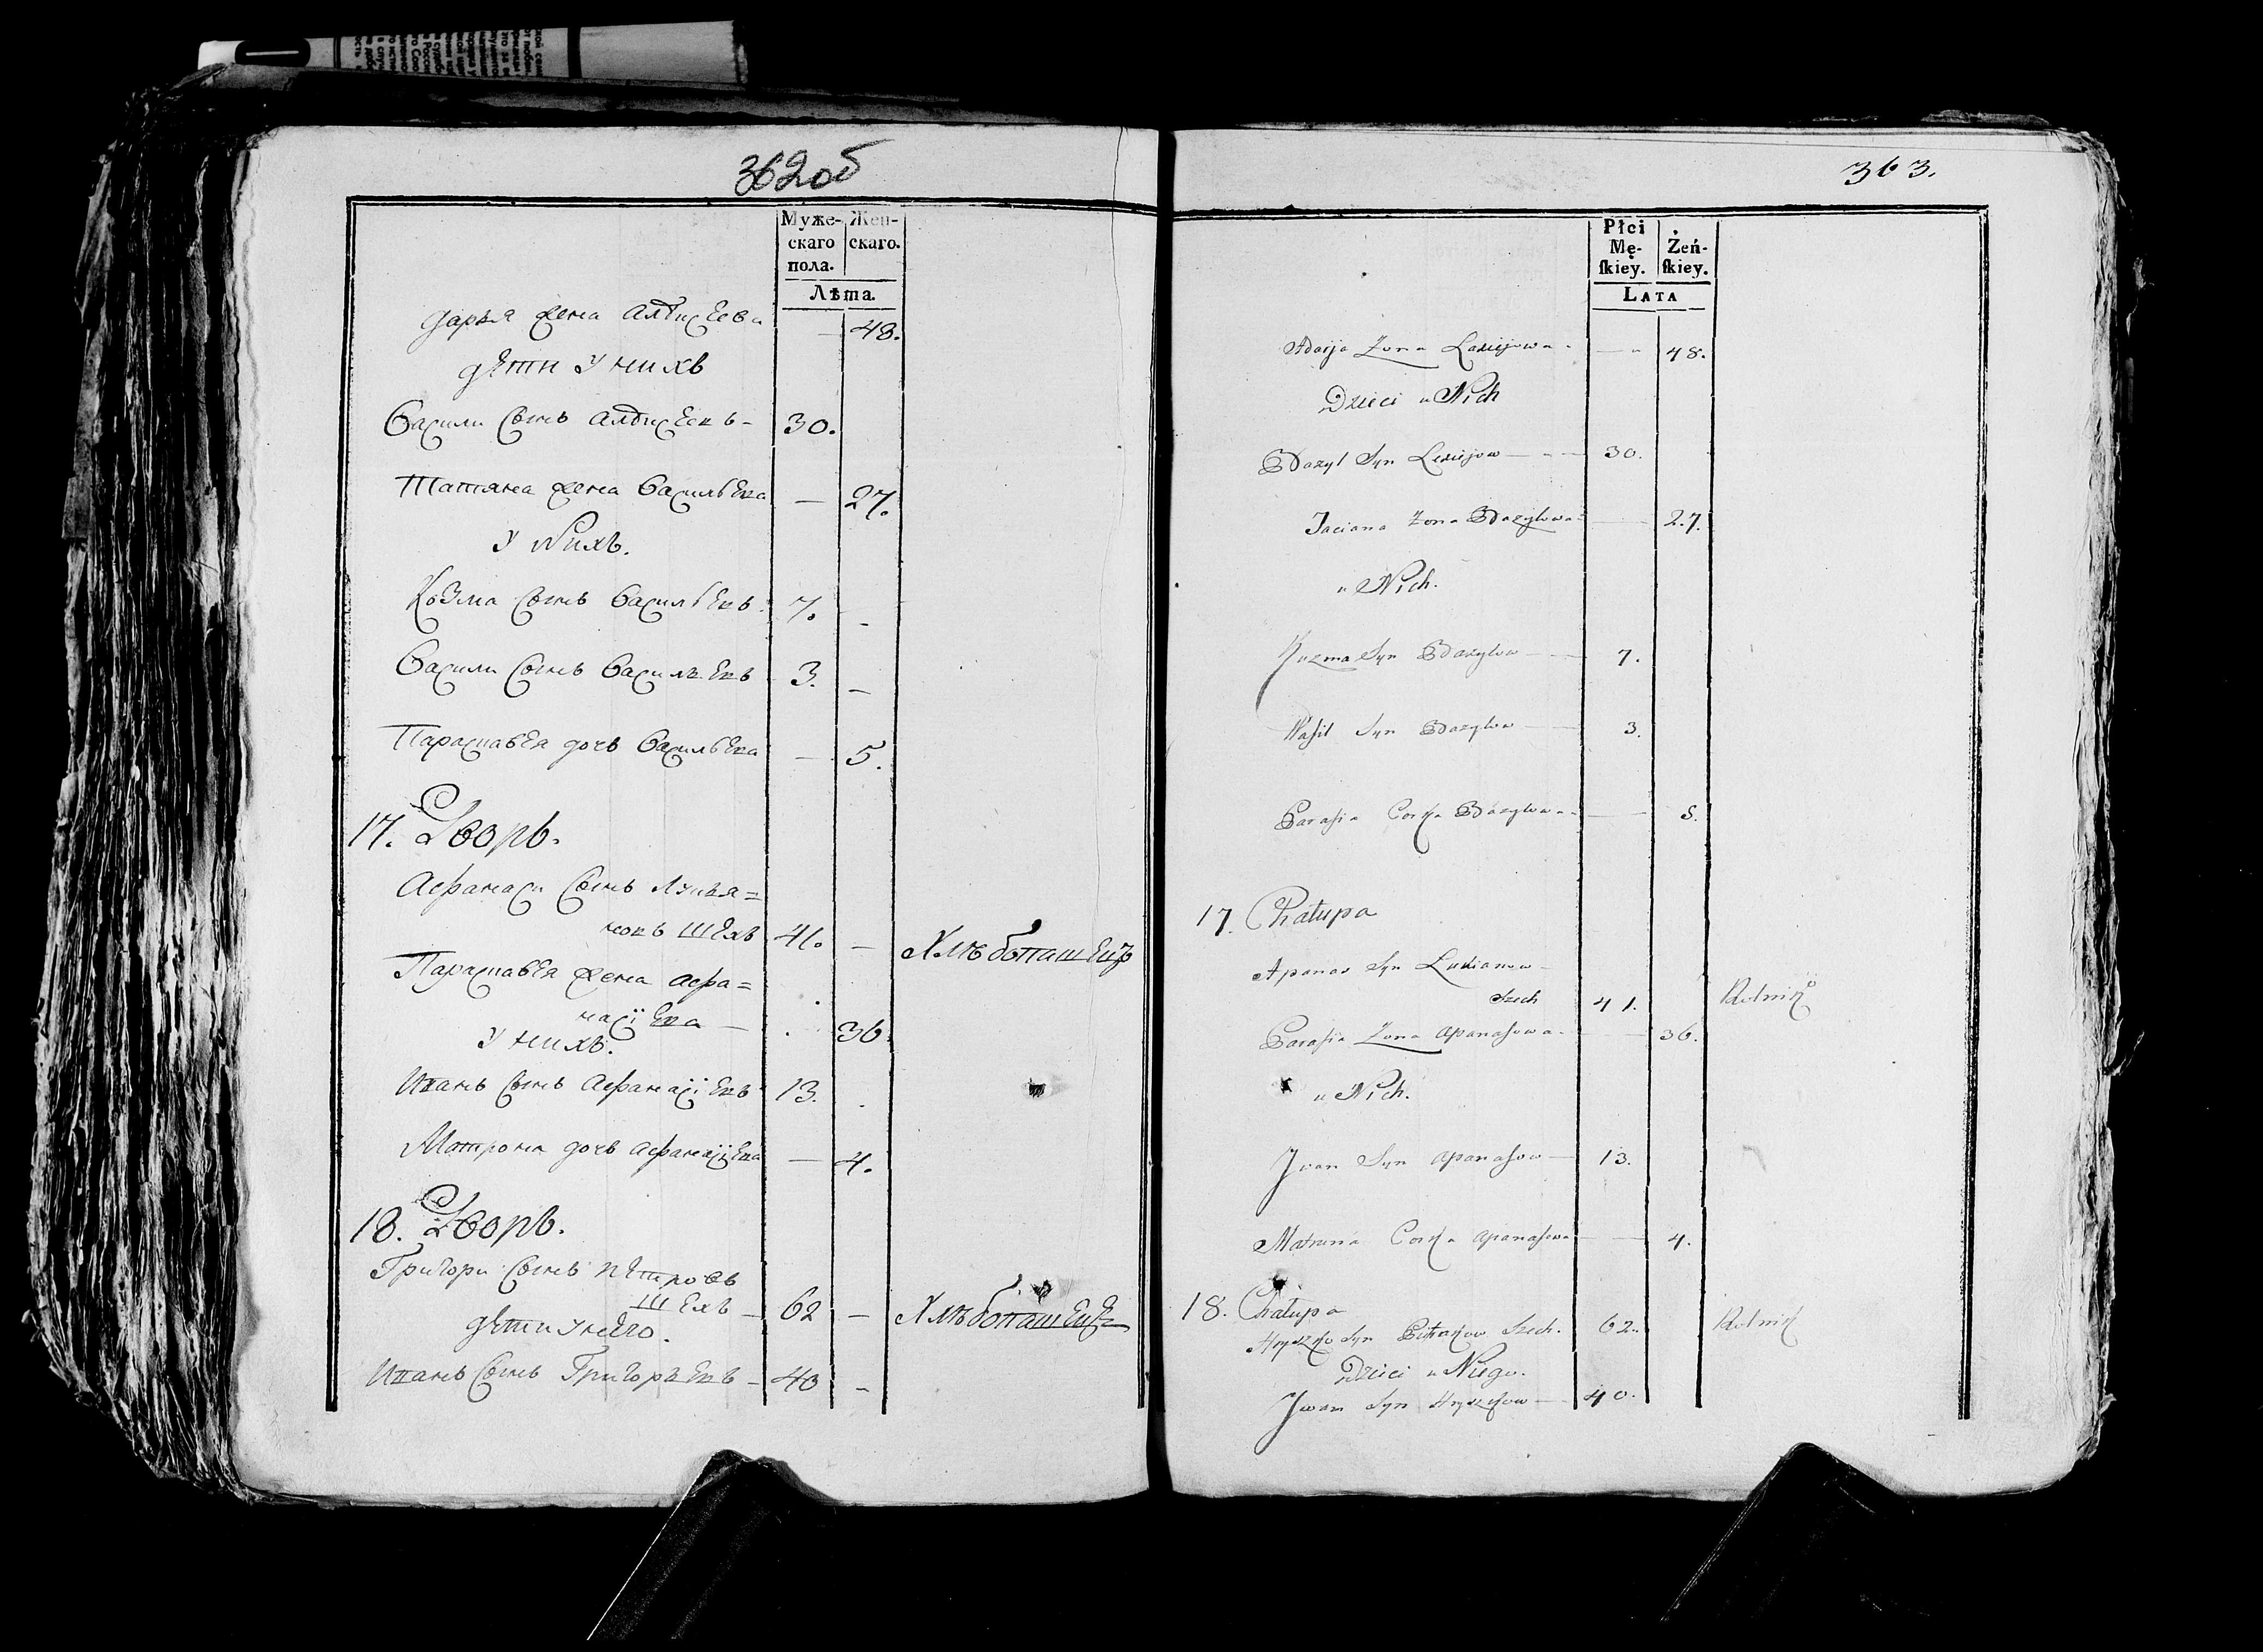 362об
Муже-
скаго
пола.
Жен-
скаго.
Лѣта.
дарья жена алѣисеева — 48.
дети у нихъ
василй сынъ алѣисеевъ - 30.
Татяна жена василева — 27.
у нихъ.
Козма сынъ василевъ 7. -
василй сынъ васильевъ 3. -
Парасꙗвея дочь васильева — 5.
17. Дворъ.
Афанаси сынъ лукья=
новъ шехъ 41. — Хлѣбопашецъ
Парасꙗвея жена афа=
насїева — 36.
у нихъ.
иванъ сынъ афанасїевъ 13.
Матрона дочь афанасїева — 4.
18. Дворъ.
Григори сынъ петровъ
шехъ — 62 — Хлѣбопашецъ
дети унего.
иванъ сынъ Григорьевъ - 40 -
363.
Płci
Mę-
ſkiey.
Żeń-
ſkiey.
LATA
Zona 48.
Dzieci u Nich
Bazyl Syn 30.
Taciana Zona Bazylowa 27.
u Nich.
Kuzma Syn Bazylow 7.
Waſil Syn Bazylow 3.
Paraſia Corka Bazylowa 5.
17. Chałupa
Apanas Syn Lukianow
Szech 41. Rolnik
Paraſia Zona Apanaſowa 36.
u Nich.
Jwan Syn Apanaſow 13.
Matruna Corka Apanaſowa 4.
18. Chałupa
Hryszko Syn Pietrukow Szech. 62. Rolnik
Dzieci u Niego.
Jwan Syn Hryszkow 40.